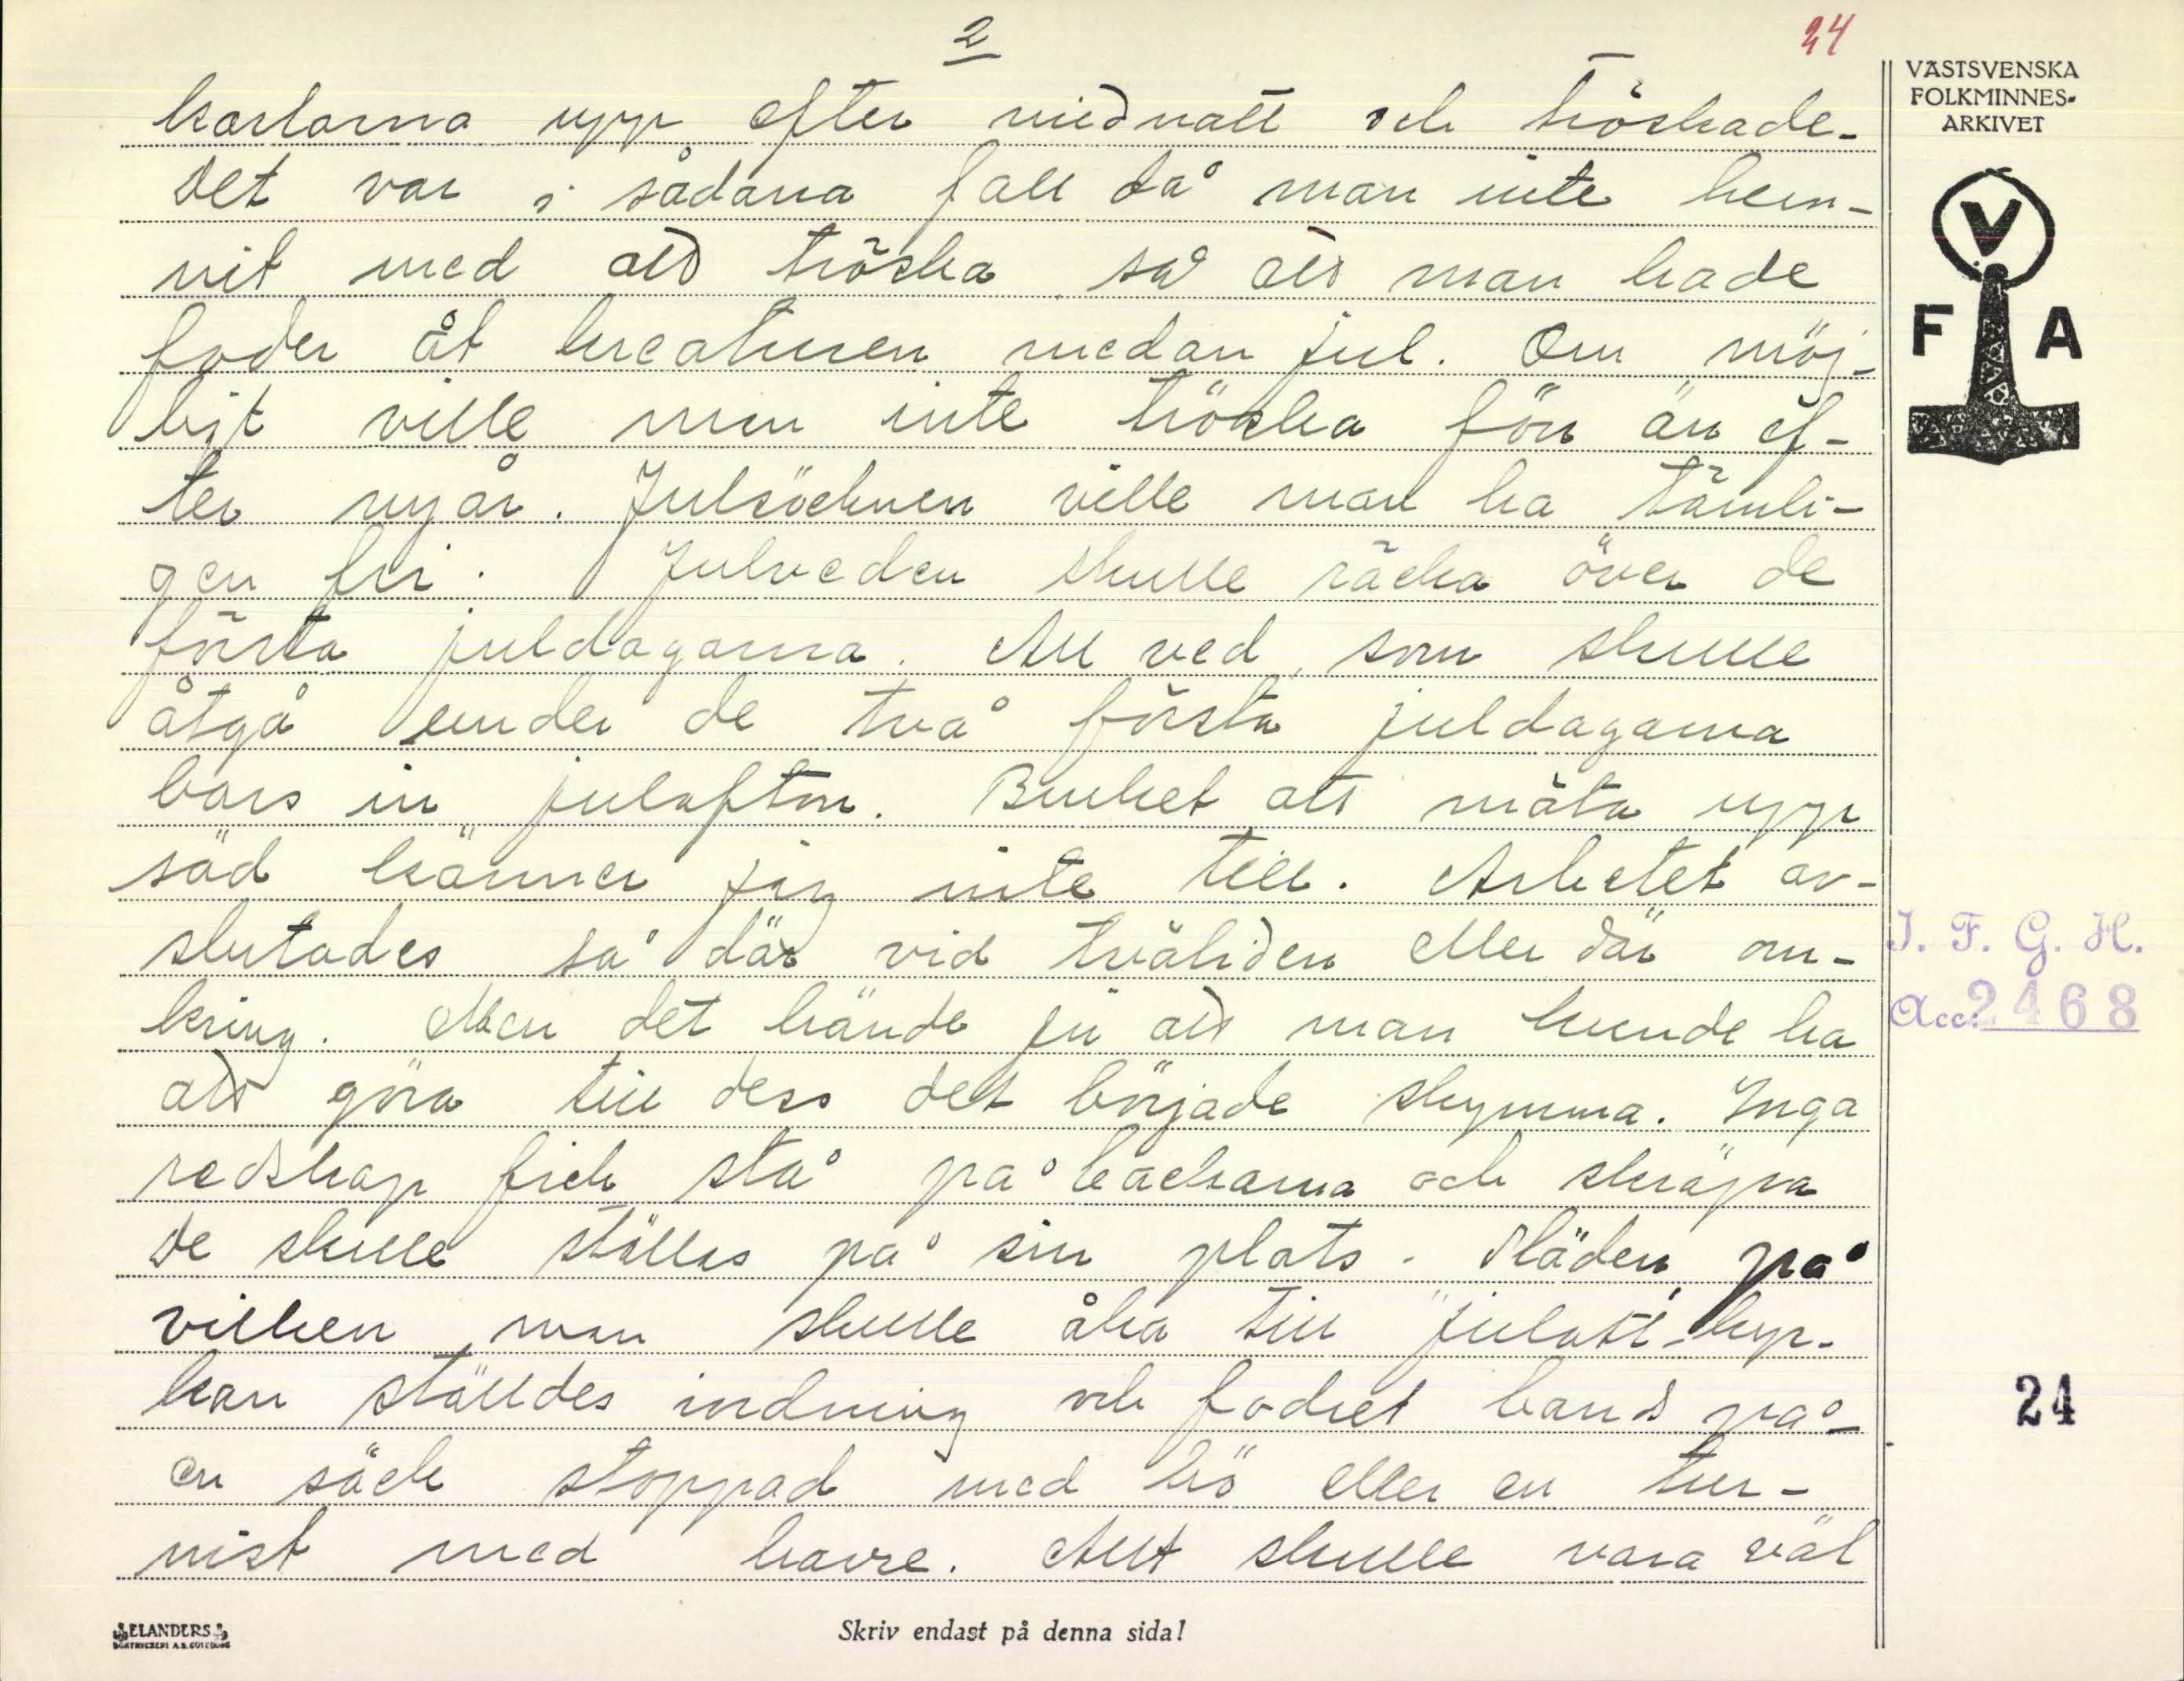 2
24
karlarna upp efter midnatt och tröskade.
Det var i sådana fall då man inte hun-
nit med att tröska så att man hade
foder åt kreaturen medan jul. Om möj-
ligt ville man inte tröska förr än ef-
ter nyår. Julveckan ville man ha tämli-
gen fri. Julveden skulle räcka över de
första juldagarna. All ved, som skulle
åtgå under de två första juldagarna
bars in julafton. Bruket att mäta upp
säd känner jag inte till. Arbetet av-
slutades så där vid tvåtiden eller där om-
kring. Men det hände ju att man kunde ha
att göra till dess det började skymma. Inga
redskap fick stå på backarna och skräpa
de skulle ställas på sin plats. Släden, på
vilken man skulle åka till julott-kyr-
kan ställdes iordning och fodret bands på-
en säck stoppad med hö eller en tor-
nist med havre. Allt skulle vara väl
VÄSTSVENSKA
FOLKMINNES-
ARKIVET
V
F A
I. F. G. H.
Acc. 2468
24
ELANDERS
BOKTRYCKERI A.B. GÖTEBORG
Skriv endast på denna sida!